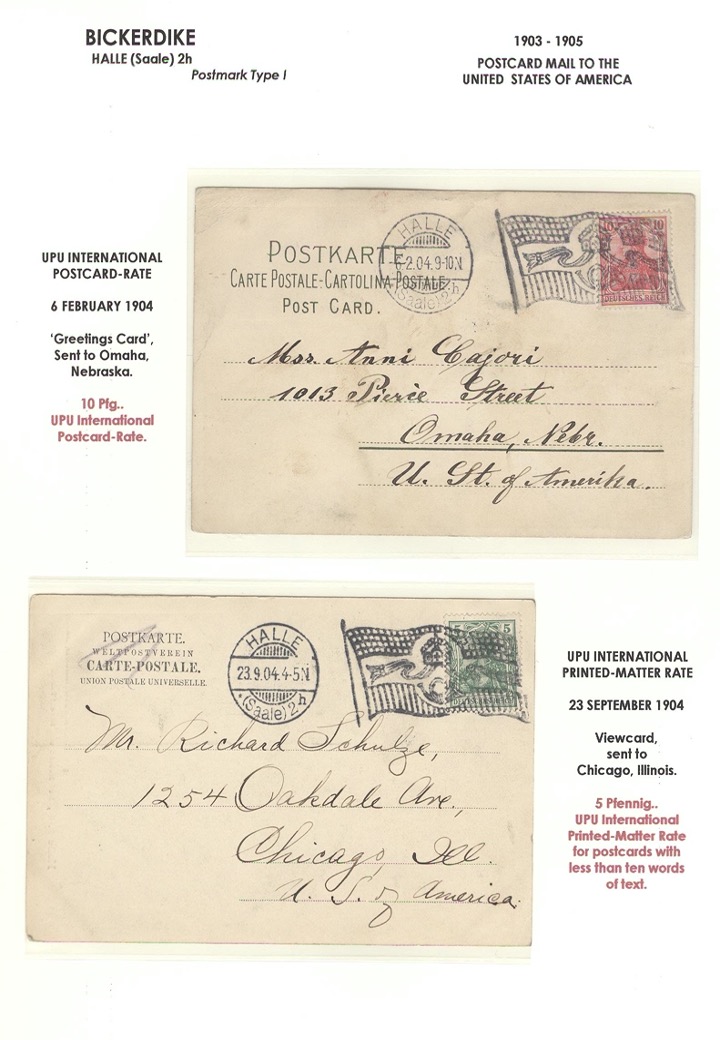 BICKERDIKE
HALLE (Saale) 2h
Postmark Type I
1903 - 1905
POSTCARD MAIL TO THE
UNITED STATES OF AMERICA
UPU INTERNATIONAL
POSTCARD-RATE
6 FEBRUARY 1904
'Greetings Card',
Sent to Omaha,
Nebraska.
10 Pfg..
UPU International
Postcard-Rate.
POSTKARTE
CARTE POSTALE-CARTOLINA POSTALE
POST CARD.
HALLE
6.2.04.9-10.N
(Saale) 2h
10
10
DEUTSCHES REICH
Mss. Anni Cajori
1013 Pierce Street
Omaha, Nebr.
U. St. of Amerika.
POSTKARTE.
WELTPOSTVEREIN
CARTE-POSTALE.
UNION POSTALE UNIVERSELLE.
HALLE
23.9.04.4-5N
* (Saale) 2h
5
Mr. Richard Schulze,
1254 Oakdale Ave.,
Chicago, Ill.
U. S. of America.
UPU INTERNATIONAL
PRINTED-MATTER RATE
23 SEPTEMBER 1904
Viewcard,
sent to
Chicago, Illinois.
5 Pfennig..
UPU International
Printed-Matter Rate
for postcards with
less than ten words
of text.